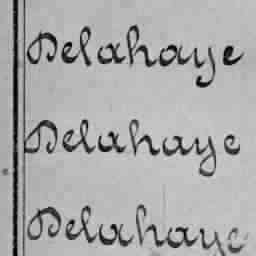 Delahaye
Delahaye
Delahaye